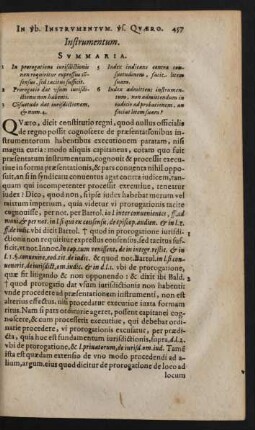 IN ℣b. INSTRVMENTVM. ℣ſ. QVÆRO. 457
Inſtrumentum.
SVMMARIA.
1 In prorogatione iuriſdictionis
non requiritur expreſſus cō-
ſenſus, ſed tacitus ſufficit.
2 Prorogatio dat vſum iuriſdi-
ctionis non habenti.
3 Conſuetudo dat iuriſdictionem,
& num. 4.
5 Iudex iudicans contra
ſententiam, facit. litem
ſuam.
6 Iudex admittens inſtrumen-
tum, non admittendum in
iudicio ad probationem, an
faciat litem ſuam?
QVæro, dicit conſtitutio regni, quod nullus officialis
de regno poſſit cognoſcere de præſentationibus in-
ſtrumentorum habentibus executionem paratam, niſi
magna curia: modo aliquis capitaneus, coram quo fuit
præſentatum inſtrumentum, cognouit & proceſſit exe-
cutiue, parte præſente & non opponente, & tulit ſen-
tentiam, & ſic in ſyndicatu conuentus aget contra iudicem,
quia non competenter proceſſit executiue, tenetur
iudex? Dico, quod non, ſi ipſe iudex habebat merum vel
mixtum imperium, quia videtur vi prorogationis tacite
cognouiſſe, per not. per Bartol. in l. inter conuenientes, ff. ad
munic. & per not. in l. ſi quis ex conſenſu. de epiſcop. audien. & in l. 1.
ff. de iudic. vbi dicit Bartol. † quod in prorogatione iuriſdi-
ctionis non requiritur expreſſus conſenſus, ſed tacitus ſuffi-
cit, & not. Innoc. in cap. cum veniſſent, de in integr. reſtit. & in
l. 1. §. conuenire, & quod not. Bartol. in l. ſi con-
uenerit, de iuriſdict. om. iudic. & in d. l. 1. vbi de prorogatione,
quæ fit litigando & non opponendo: & dixit ibi Bald.
† quod prorogatio dat vſum iuriſdictionis non habenti
vnde procedere ad præſentationem inſtrumenti, non eſt
alterius effectus, quàm procedatur executiue iuxta formam
ritus. Nam ſi pars ordinariè ageret, poſſent capitanei co-
gnoſcere, & cùm proceſſit executiuè, qui debebat ordi-
nariè procedere, vi prorogationis excuſatur, per prædi-
cta, quia hoc eſt fundamentum iuriſdictionis, ſupra, d. l. 2.
vbi de prorogatione, & l. priuatorum, de iuriſd. om. iud. Tum
iſta eſt quædam extenſio de vno modo procedendi ad a-
lium, argum. eius quod dicitur de prorogatione de loco ad
locum